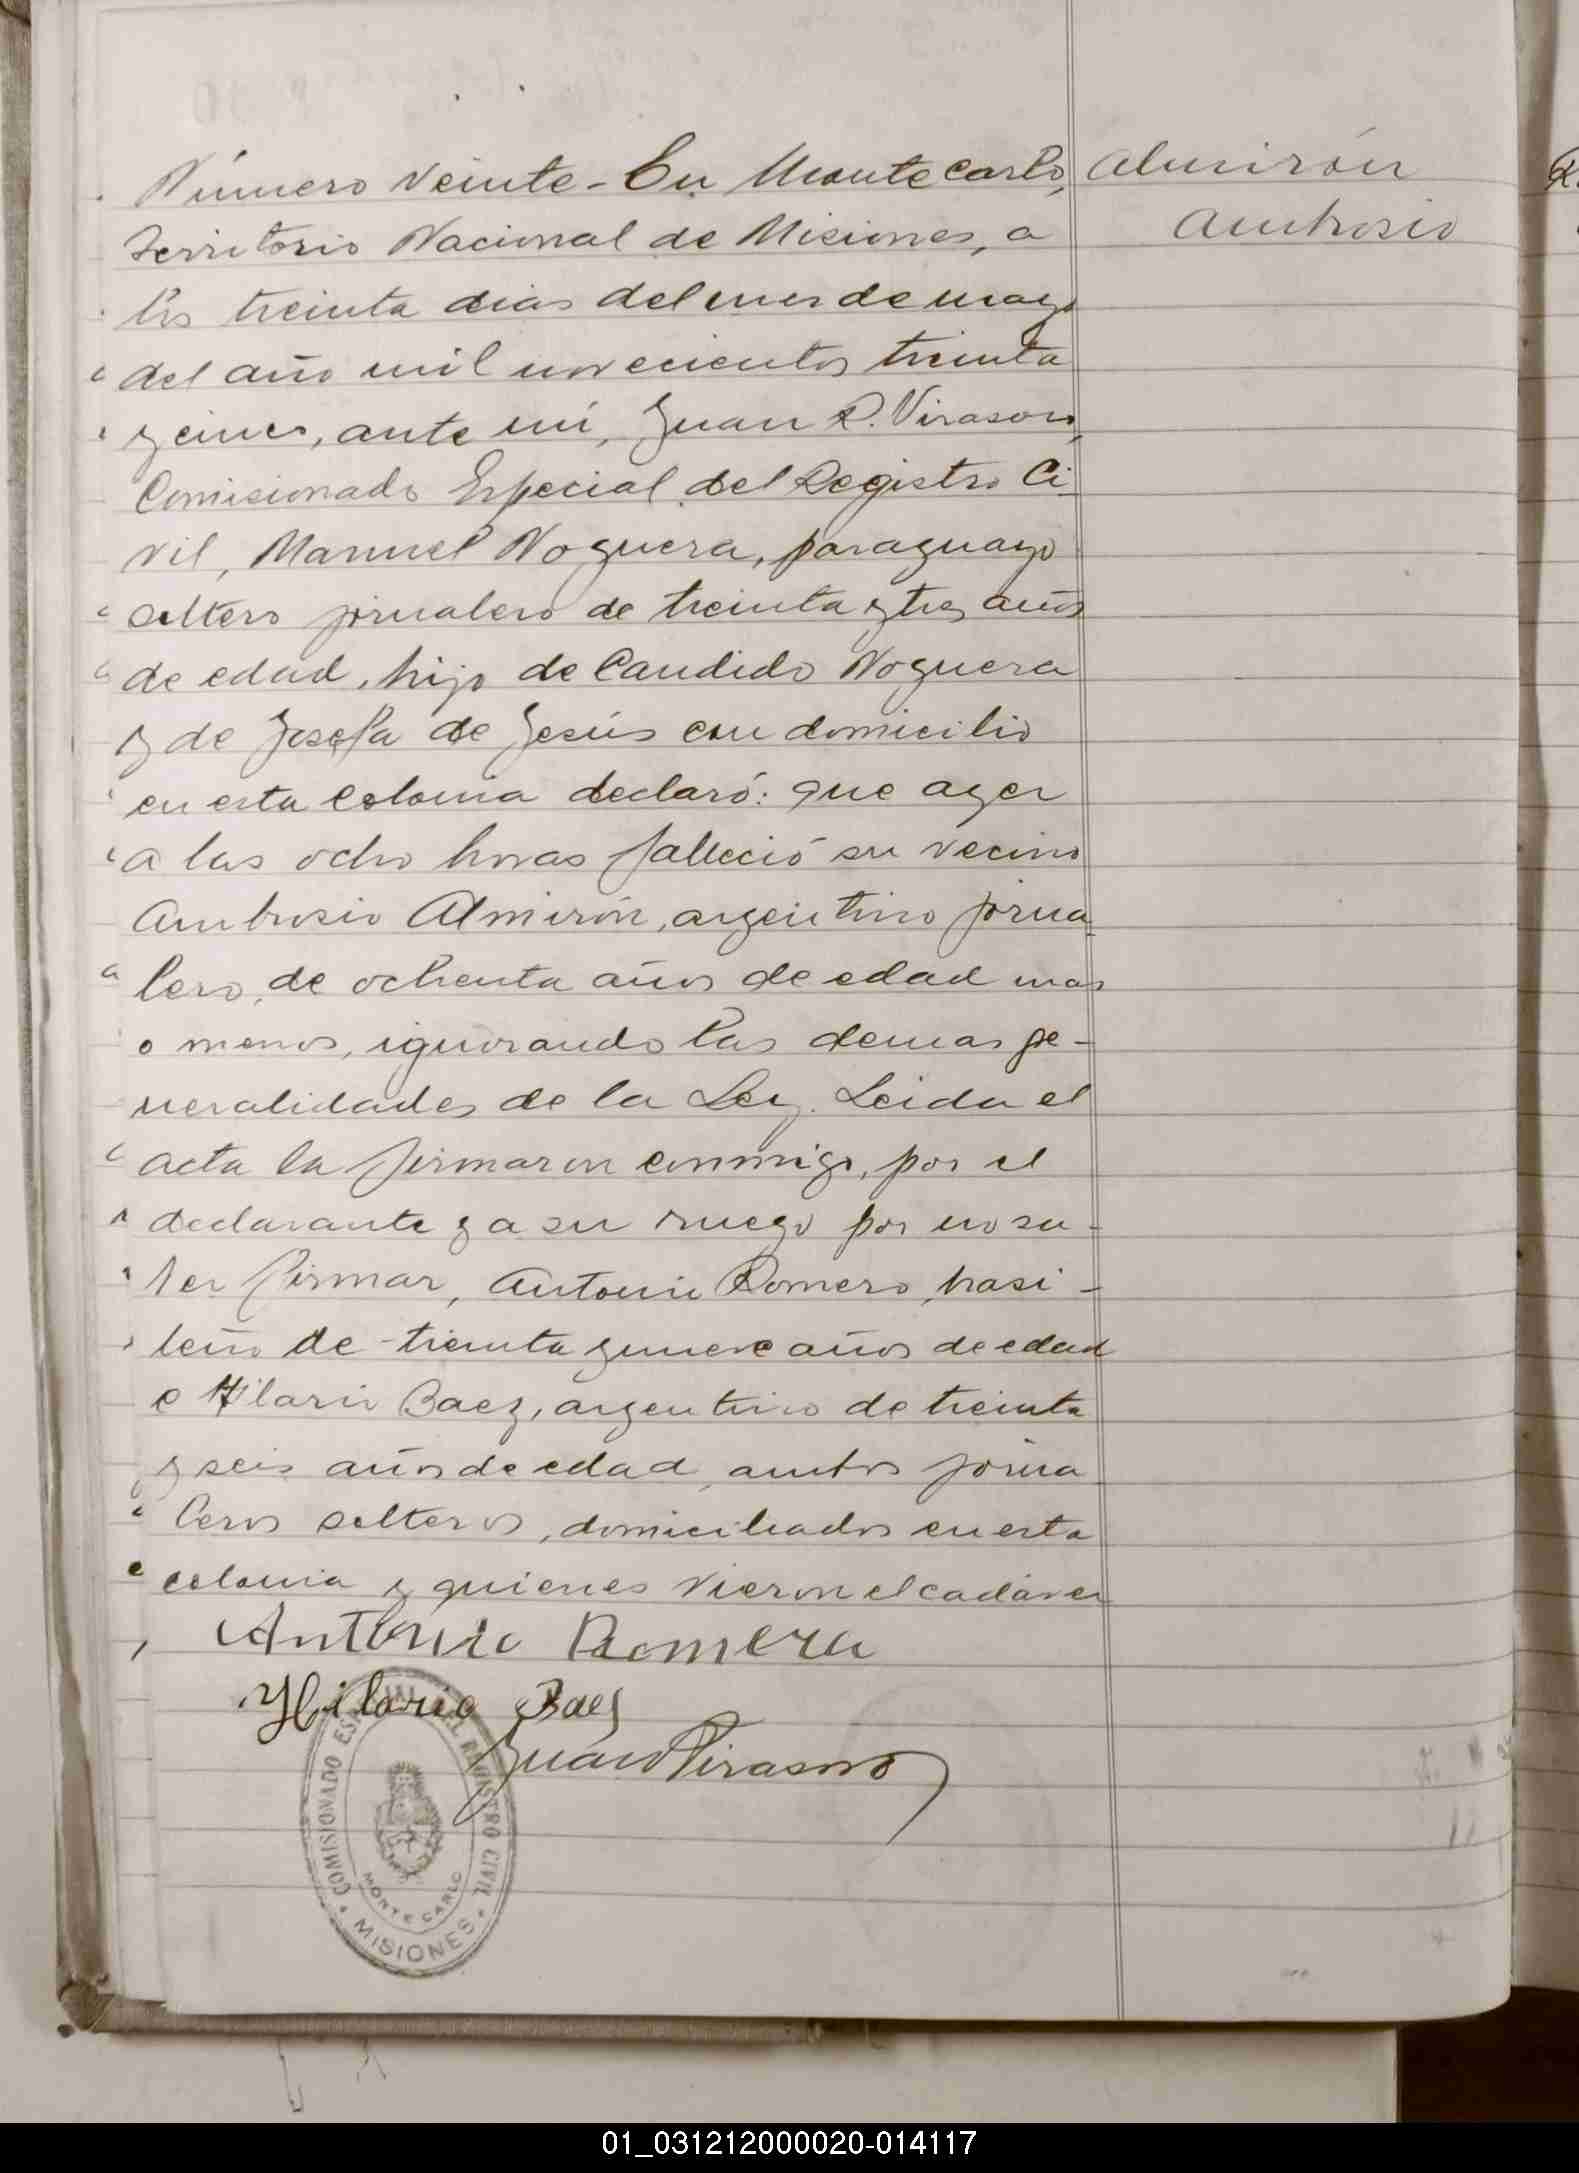 Número veinte - En Monte Carlo,
Territorio Nacional de Misiones, a
los treinta dias del mes de mayo
del año mil novecientos treinta
y cinco, ante mí, Juan R. Virasoro,
Comisionado Especial del Registro Ci-
vil, Manuel Noguera, paraguayo
soltero jornalero de treinta y tres años
de edad, hijo de Candido Noguera
y de Josefa de Jesús con domicilio
en esta colonia declaró: que ayer
a las ocho horas falleció su vecino
Ambrosio Almirón, argentino jorna-
lero, de ochenta años de edad mas
o menos, ignorando las demas ge-
neralidades de la Ley. Leida el
acta la firmaron conmigo, por el
declarante y a su ruego por no sa-
ber firmar, Antonio Romero, brasi-
leño de treinta y nueve años de edad
e Hilario Baez, argentino de treinta
y seis años de edad, ambos jorna-
leros solteros, domiciliados en esta
colonia y quienes vieron el cadáver
Antonio Romero
Hilario Baez
Juan R Virasoro
Almirón
Ambrosio
COMISIONADO ESPECIAL DEL REGISTRO CIVIL
MONTE CARLO
MISIONES
01_031212000020-014117